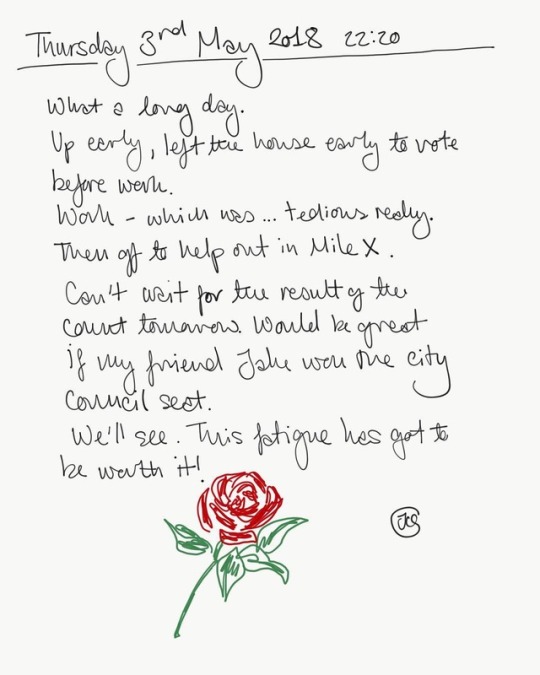 Thursday 3rd May 2018 22:20
What a long day.
Up early, left the house early to vote
before work.
Work - which was ... tedious really.
Then off to help out in Mile X.
Can't wait for the result of the
count tomorrow. Would be great
if my friend Jake won the city
council seat.
We'll see. This fatigue has got to
be worth it!